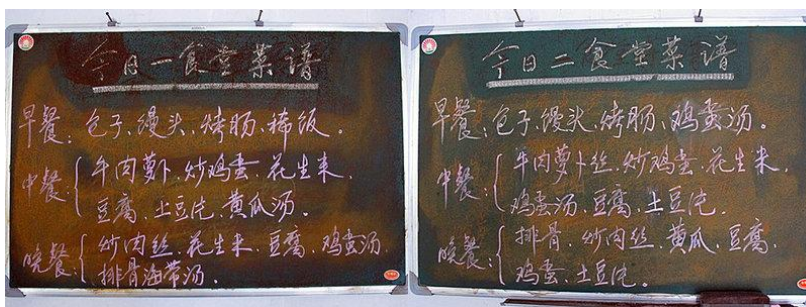 今日一食堂菜谱
早餐：包子、馒头、烤肠、稀饭。
中餐：牛肉萝卜、炒鸡蛋、花生米、
豆腐、土豆饨、黄瓜汤。
晚餐：炒肉丝、花生米、豆腐、鸡蛋汤、
排骨海带汤。
今日二食堂菜谱
早餐：包子、馒头、烤肠、鸡蛋汤。
中餐：牛肉萝卜丝、炒鸡蛋、花生米、
鸡蛋汤、豆腐、土豆饨。
晚餐：排骨、炒肉丝、黄瓜、豆腐、
鸡蛋、土豆饨。